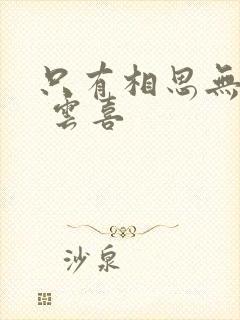 只有相思無
雲喜
沙泉